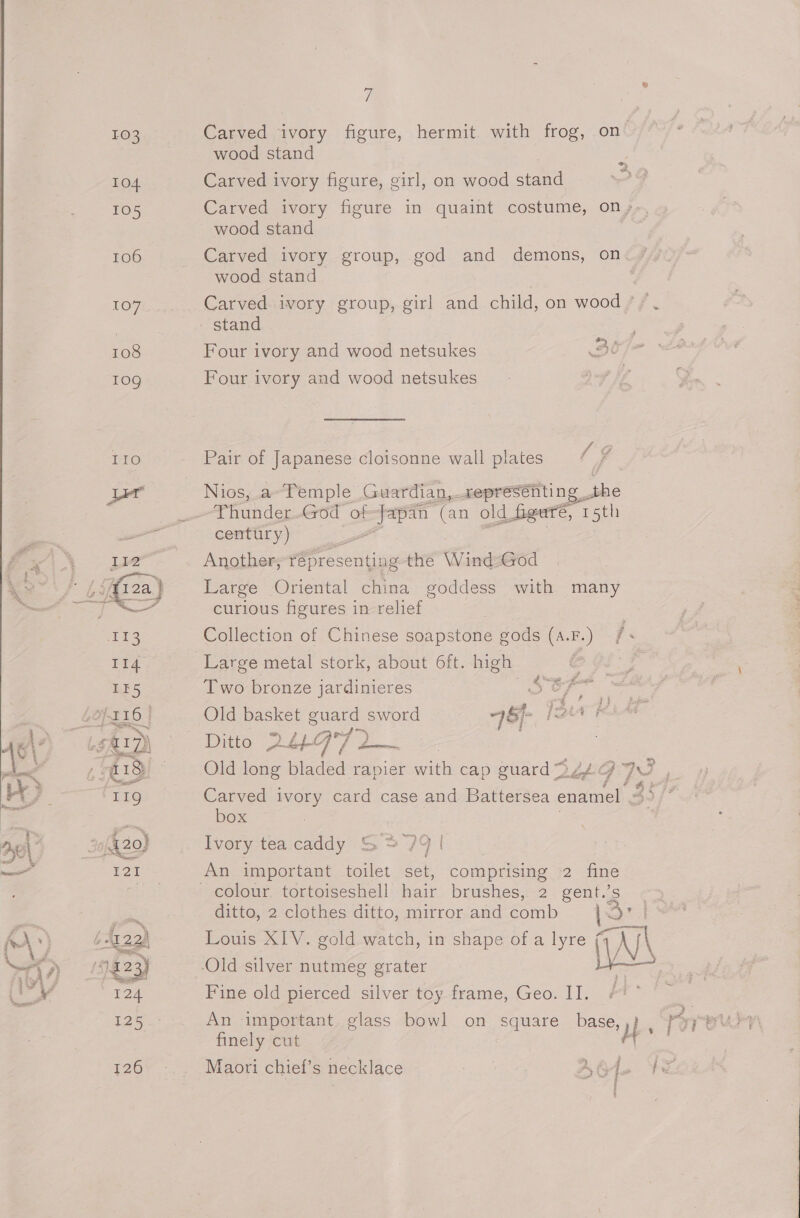 7
103 Carved ivory figure, hermit with frog, on
wood stand
104 Carved ivory figure, girl, on wood stand
105 Carved ivory figure in quaint costume, on
wood stand
106 Carved ivory group, god and demons, on
wood stand
107 Carved ivory group, girl and child, on wood
stand
108 Four ivory and wood netsukes
109 Four ivory and wood netsukes
110 Pair of Japanese cloisonne wall plates
111 Nios, a Temple Guardian, representing the
Thunder God of Japan (an old figure, 15th
century)
112 Another, representing the Wind God
112a Large Oriental china goddess with many
curious figures in relief
113 Collection of Chinese soapstone gods (A.F.)
114 Large metal stork, about 6ft. high
115 Two bronze jardinieres
116 Old basket guard sword
117 Ditto 24972
118 Old long bladed rapier with cap guard 24973
119 Carved ivory card case and Battersea enamel
box
120 Ivory tea caddy
121 An important toilet set, comprising 2 fine
colour tortoiseshell hair brushes, 2 gent.'s
ditto, 2 clothes ditto, mirror and comb
122 Louis XIV. gold watch, in shape of a lyre
123 Old silver nutmeg grater
124 Fine old pierced silver toy frame, Geo. II.
125 An important glass bowl on square base,
finely cut
126 Maori chief's necklace